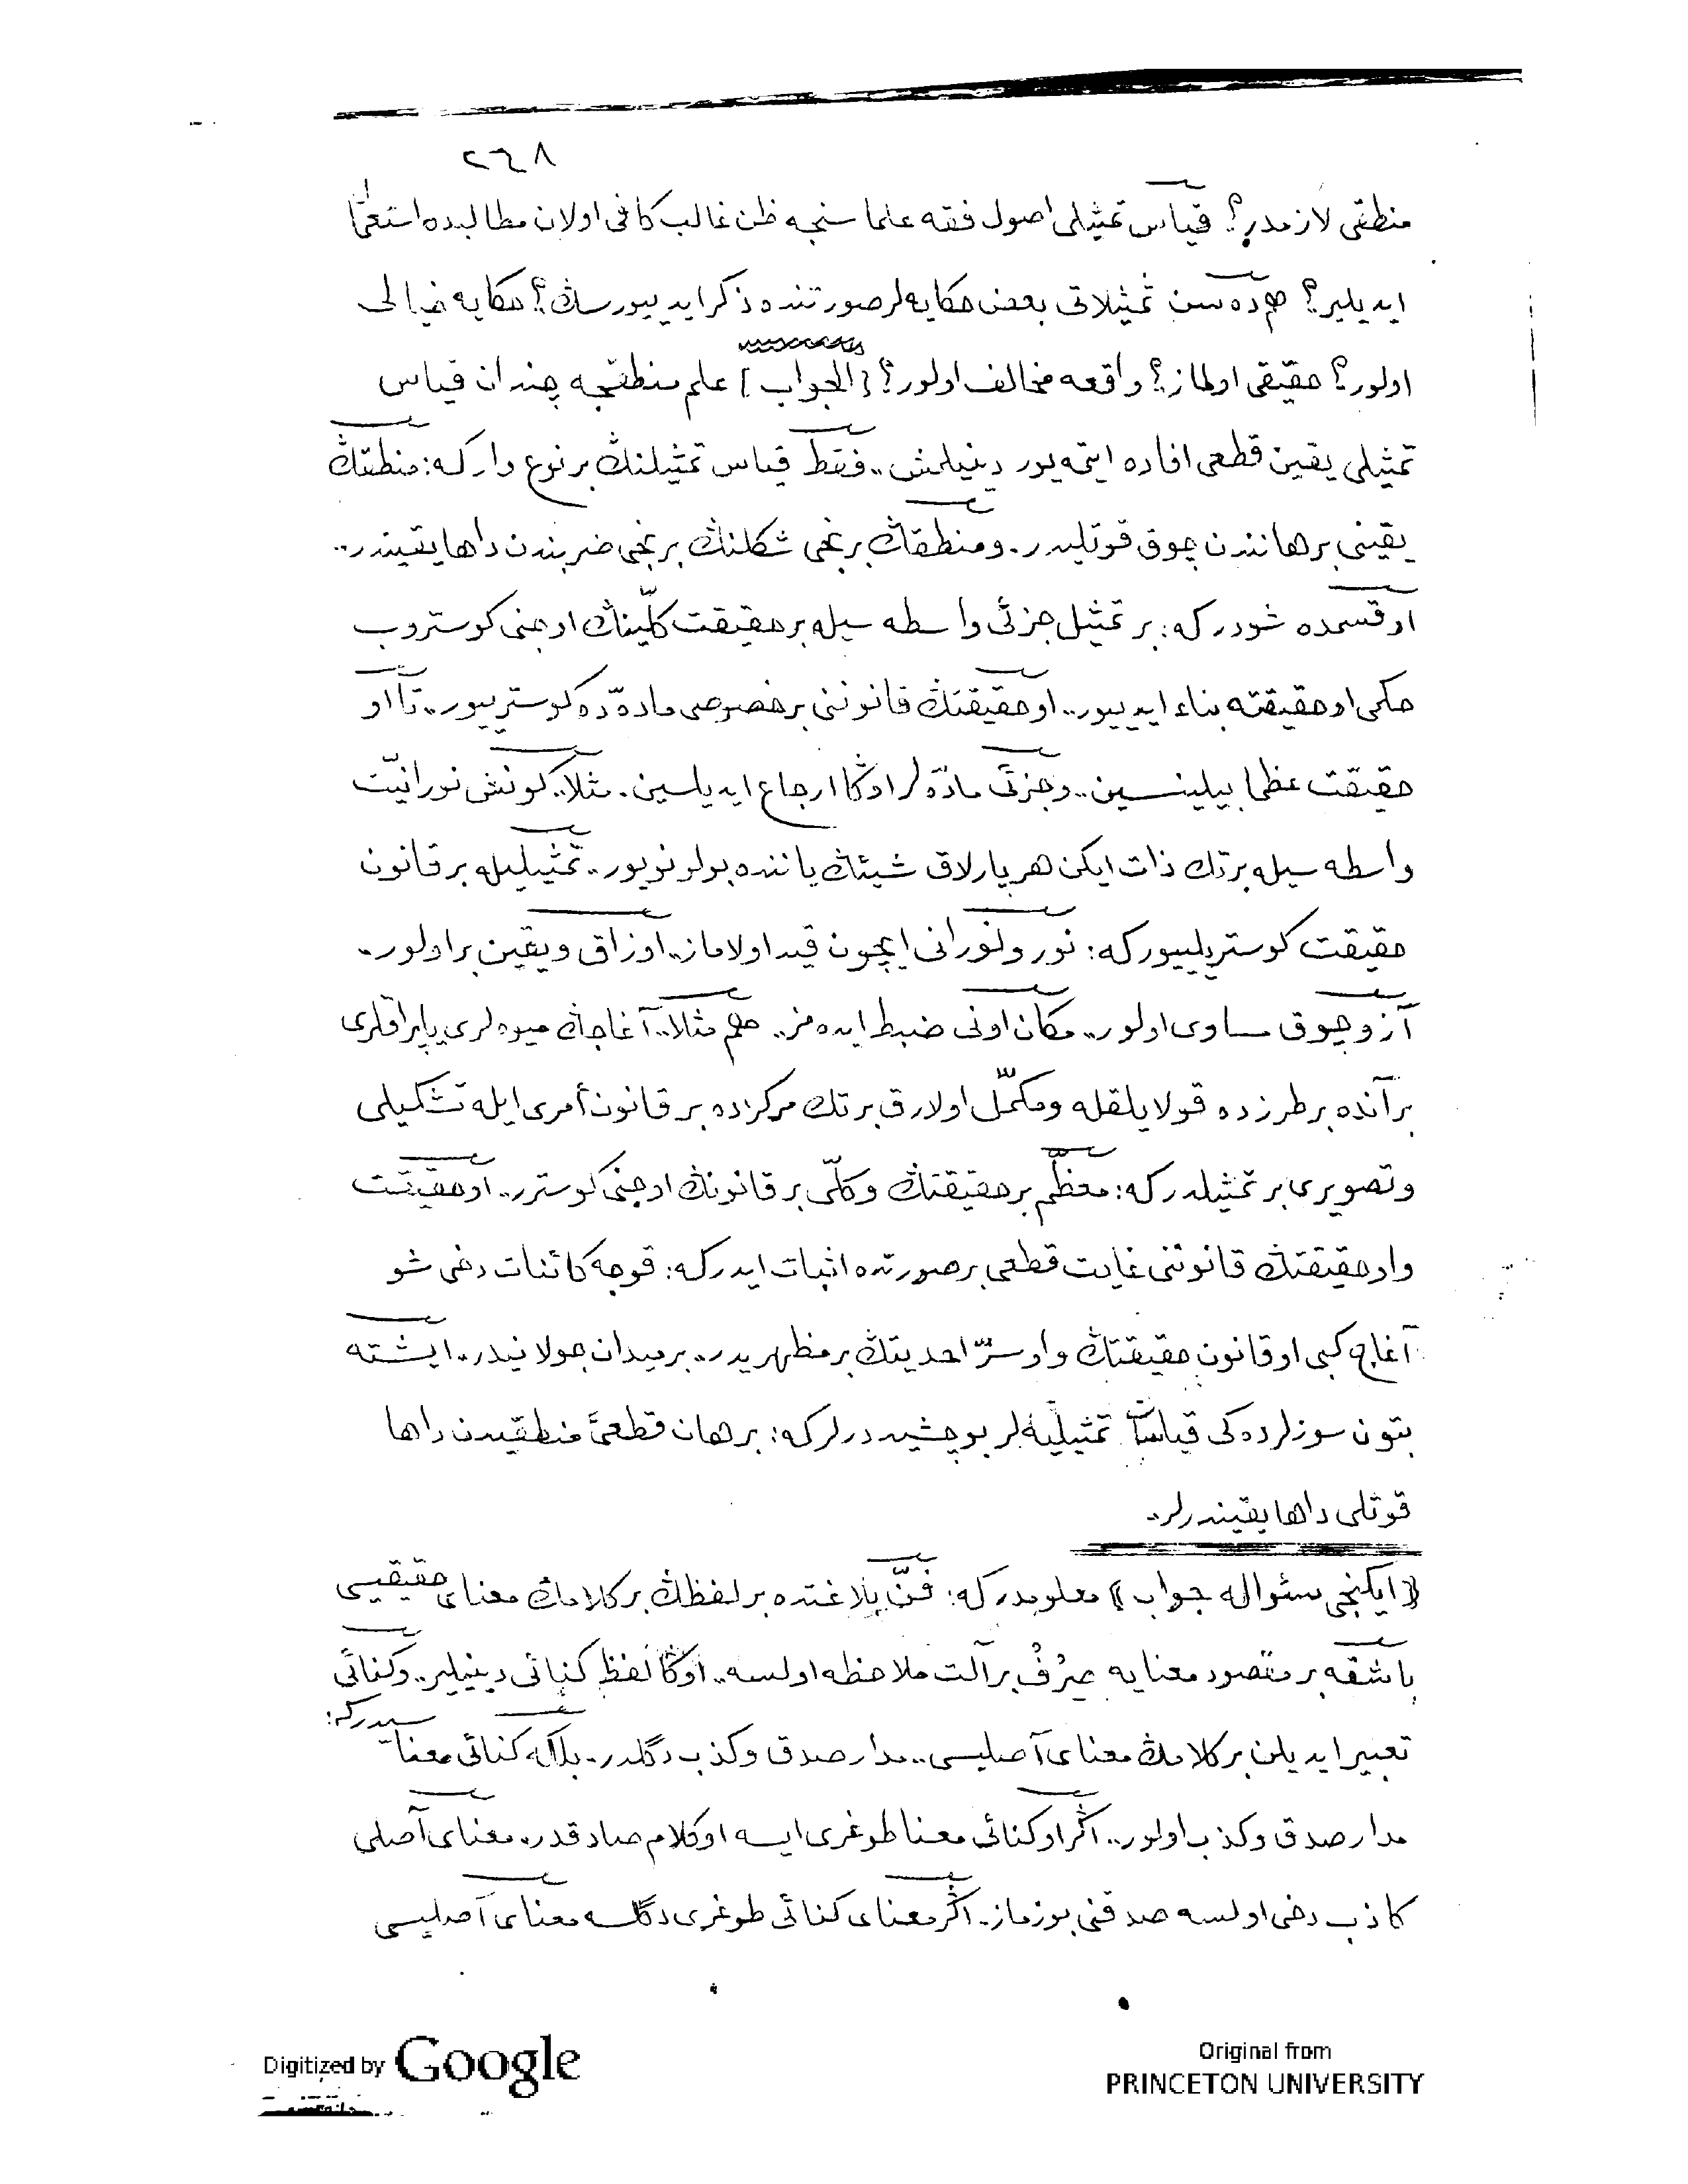 ٢٦٨
منطقى لازمدر؟ قياس تمثيلى اصول فقه علماسنجه ظن غالب كافى اولان مطالبده استعمال
ايديلير؟ هم ده سن تمثيلاتى بعض حكايه لر صورتنده ذكر ايدييورسڭ؟ حكايه خيالى
اولور؟ حقيقى اولماز؟ واقعه مخالف اولور؟ [الجواب] علم منطقجه چندان قياس
تمثيلى يقين قطعى افاده ايتمه يور دينيلمش.. فقط قياس تمثيلنڭ بر نوع وار كه: منطقڭ
يقينى برهانندن چوق قوتليدر. ومنطقڭ برنجى شكلنڭ برنجى ضربندن داها يقيندر..
او قسمده شودر كه: بر تمثيل جزئى واسطه سيله بر حقيقت كلّينڭ اوجنى كوستروب
حكمى او حقيقته بناء ايدييور.. او حقيقتڭ قانوننى بر خصوصى مادّه ده كوسترييور.. تا او
حقيقت عظما بيلينسين.. وجزئى مادّه لر اوڭا ارجاع ايديلسين. مثلا.. كونش نورانيّت
واسطه سيله برتك ذات ايكن هر پارلاق شيئڭ ياننده بولونويور.. تمثيليله بر قانون
حقيقت كوستريلييور كه: نور ونورانى ايچون قيد اولاماز.. اوزاق ويقين بر اولور..
آز وچوق مساوى اولور.. مكان اونى ضبط ايده مز.. هم مثلا.. آغاجڭ ميوه لرى ياپراقلرى
بر آنده بر طرزده قولايلقله ومكمّل اولارق برتك مركزده بر قانون أمرى ايله تشكيلى
وتصويرى بر تمثيلدر كه: معظّم بر حقيقتڭ وكلّى بر قانونڭ اوجنى كوسترر.. او حقيقت
واو حقيقتڭ قانوننى غايت قطعى بر صورتده اثبات ايدر كه: قوجه كائنات دخى شو
آغاج كبى او قانون حقيقتڭ واو سرّ احديتڭ بر مظهريدر.. بر ميدان جولانيدر.. ايشته
بتون سوزلرده كى قياسات تمثيليه لر بو چشيددرلر كه: برهان قطعئ منطقيدن داها
قوتلى داها يقيندرلر..
﴿ايكنجى سئواله جواب﴾ معلومدر كه: فنّ بلاغتده بر لفظڭ بر كلامڭ معناى حقيقيسى
باشقه بر مقصود معنايه صِرْفْ بر آلت ملاحظه اولسه.. اوڭا لفظ كنائى دينيلير.. وكنائى
تعبير ايديلن بر كلامڭ معناى آصليسى.. مدار صدق وكذب دگلدر.. بلكه كنائى معناسيدر كه:
مدار صدق وكذب اولور.. اگر او كنائى معنا طوغرى ايسه او كلام صادقدر.. معناى آصلى
كاذب دخى اولسه صدقنى بوزماز.. اگر معناى كنائى طوغرى دگلسه معناى آصليسى
Digitized by Google
Original from
PRINCETON UNIVERSITY